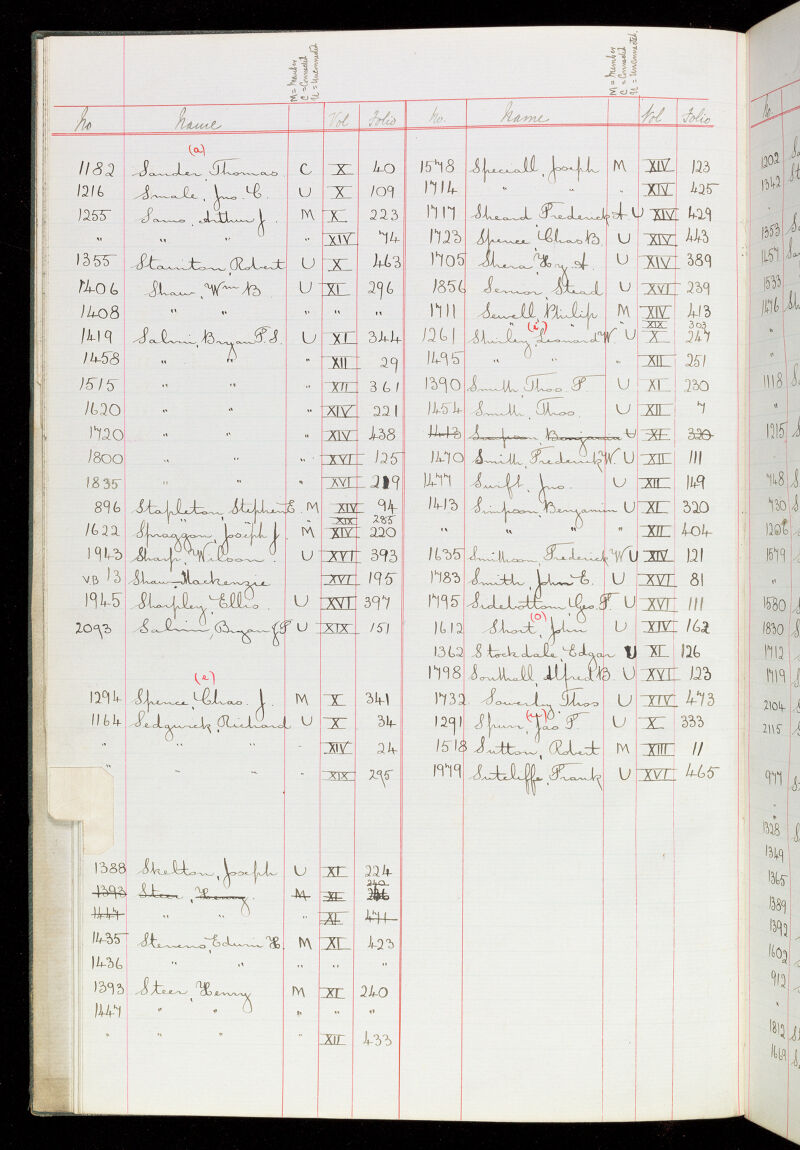 M = Member
C = Connected
U = Unconnected.
No Name Vol Folio
(a)
1182 Sander, Thomas C X 40
1216 Smale, Jno. C. U X 109
1255 Sams, Arthur J. M X 223
" " " " XIV 74
1355 Stainton, Robert U X 463
1406 Shaw, Wm B U XI 296
1408 " " " " "
1419 Salvin, Bryan P.S. U XI 344
1458 " " " XII 29
1515 " " " XII 361
1620 " " " XIV 221
1720 " " " XIV 438
1800 " " " XVI 125
1835 " " " XVI 219
896 Stapleton, Stephen E. M XIV 94
" XIX 285
1622 Spraggon, Joseph J. M XIV 220
1943 Sharp, Wilson. U XVI 393
VB 13 Shaw-Mackenzie XVI 195
1945 Sharpley, Ellis. U XVI 397
2093 Salvin, Bryan J P U XIX 151
(e)
1294 Spence, Chas. J. M X 341
1164 Sedgwick, Richard U X 34
" " " " XIV 24
" " " " XIX 295
1388 Skelton, Joseph U XI 224
240
1393 Steer, Henry. M XI
1447 " " " XI 471
1435 Stevens, Edwin H. M XI 423
1436 " " " " "
1393 Steer, Henry M XI 240
1447 " " " " "
" " " " XII 433
M = Member
C = Connected
U = Unconnected.
No. Name Vol Folio
1578 Speciall, Joseph M XIV 123
1714 " " XIV 425
1717 Sheard Frederick A U XIV 429
1723 Spence, Chas B. U XIV 443
1705 Shera, Hy A. U XIV 389
1856 Senior, Stead U XVI 239
1711 Sewell, Philip M XIV 413
(i) " XIX 303
1261 Shirley, Leonard W U X 247
1495 " " " XII 251
1390 Smith, Thos. P U XI 230
1454 Smith, Thos. U XII 7
1413 Simpson, Benjamin U XI 320
1470 Smith, Frederick W U XII 111
1477 Swift, Jno. U XII 149
1413 Simpson, Benjamin U XI 320
" " " " XII 404
1635 Smithson, Frederick W U XIV 121
1783 Smith, John E. U XVI 81
1795 Sidebottom, Geo. F. U XVI 111
(o)
1612 Short, John U XIV 162
1362 Stockdale Edgar U XI 126
1798 Southall, Alfred B. U XVI 123
1732 Sowerby, Thos U XIV 473
(u)
1291 Spurr, Jas P. U X 333
1518 Sutton, Robert M XIII 11
1979 Sutcliffe, Frank U XVI 465
No.
1202
1342
1353
1457
1533
1476
"
1118
"
1215
748 S
730 S
1206
1579
"
1580
1830 S
1712
1719
2104
2115
977
"
1328
1349
1365
1389
1392
1602
912
"
1812
1669